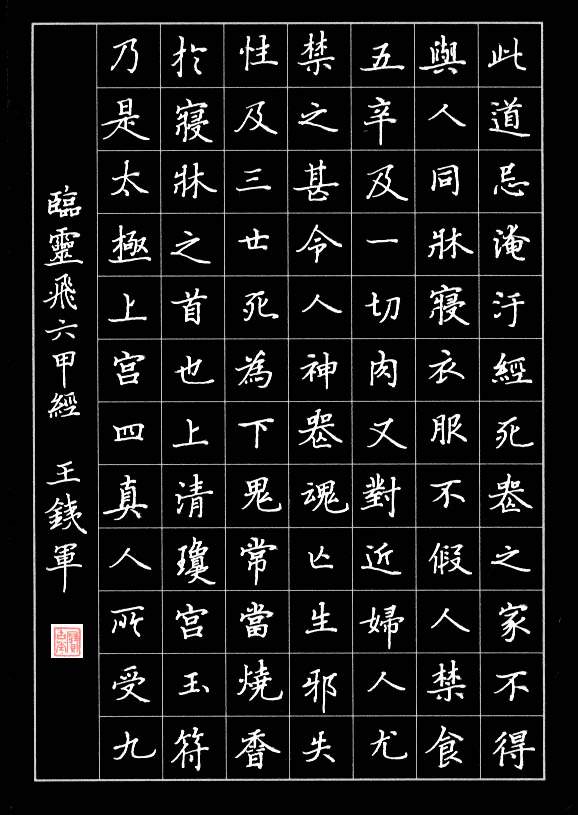 此道忌淹汙經死喪之家不得
與人同牀寢衣服不假人禁食
五辛及一切肉又對近婦人尤
禁之甚令人神喪魂亡生邪失
性及三世死為下鬼常當燒香
於寢牀之首也上清瓊宮玉符
乃是太極上宮四真人所受九
臨靈飛六甲經 王銕軍